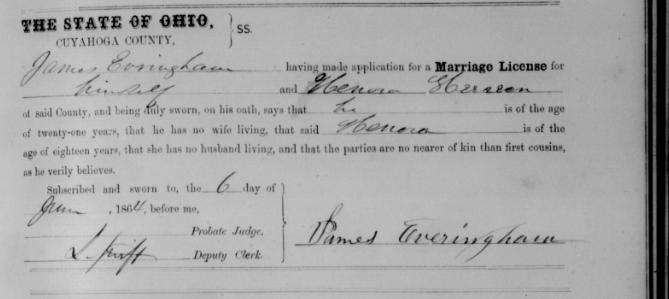 THE STATE OF OHIO, } SS.
CUYAHOGA COUNTY,
James Everingham having made application for a Marriage License for
himself and Henora Herreen
of said County, and being duly sworn, on his oath, says that he is of the age
of twenty-one years, that he has no wife living, that said Henora is of the
age of eighteen years, that she has no husband living, and that the parties are no nearer of kin than first cousins,
as he verily believes.
Subscribed and sworn to, the 6 day of
June, 1864, before me,
Probate Judge.
James Everingham
Deputy Clerk.